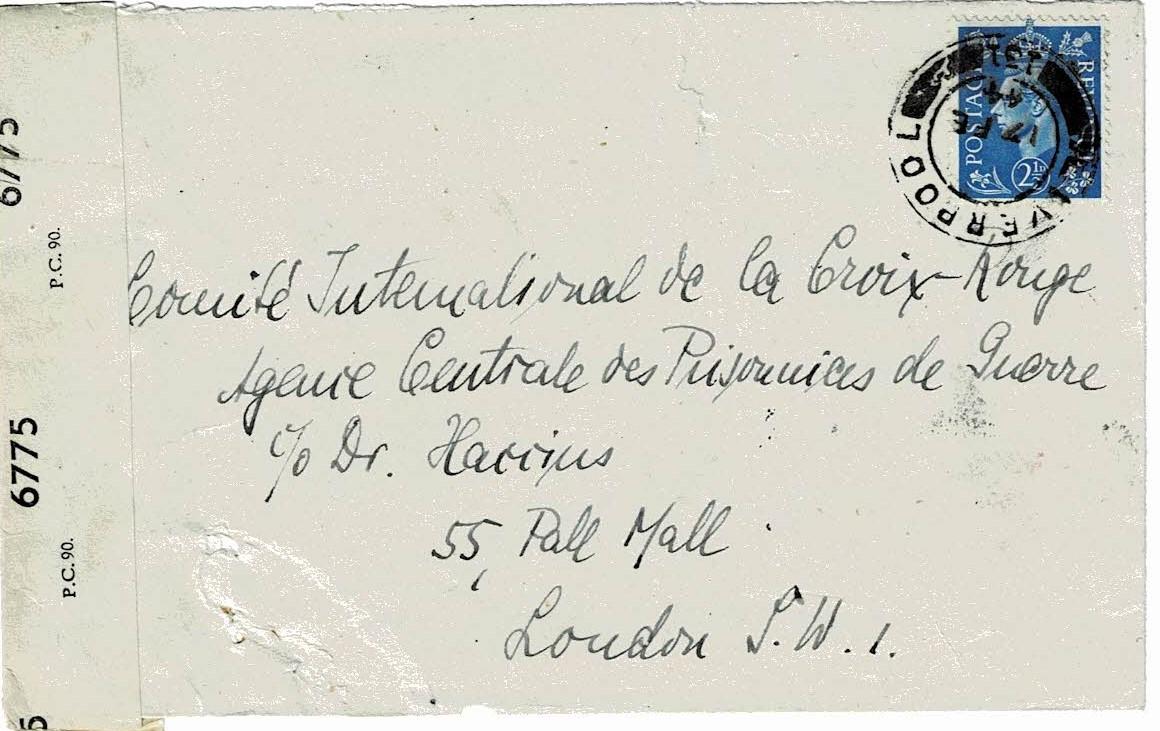 6775
P.C. 90.
6775
P.C. 90.
POSTAGE
2½D
LIVERPOOL
17 FE
44
Comité International de la Croix-Rouge
Agence Centrale des Prisonniers de Guerre
c/o Dr. Haccius
55, Pall Mall
London S.W.1.